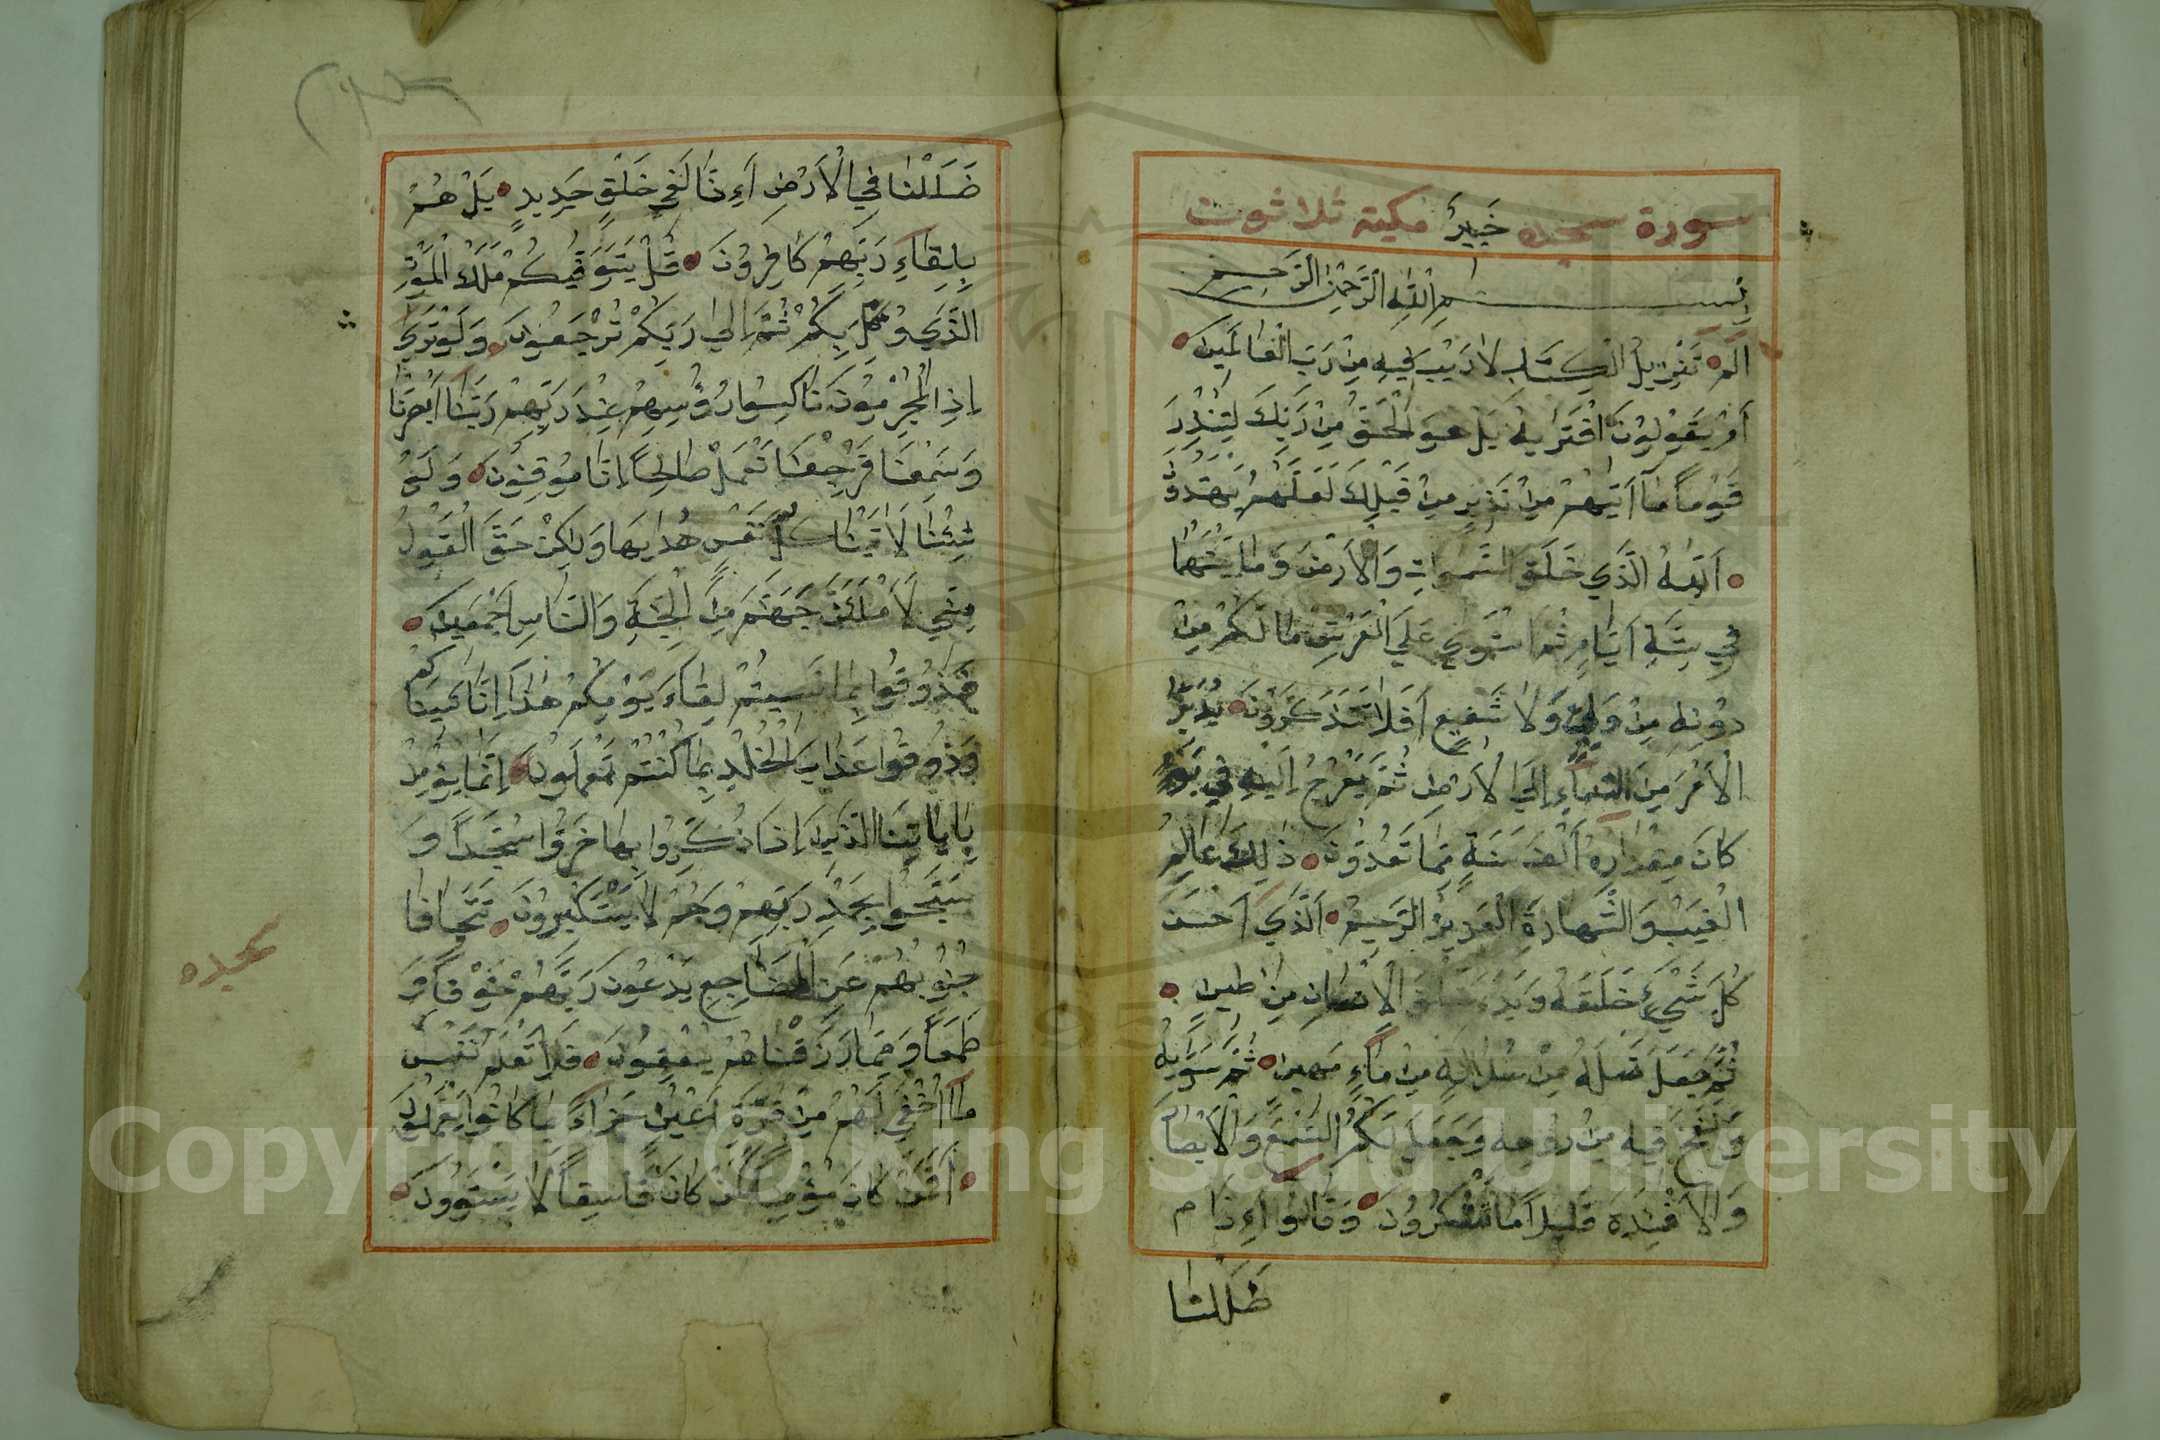 سورة سجده خبير مكية ثلاثون
بسم الله الرحمن الرحيم
الم تنزيل الكتاب لا ريب فيه من رب العالمين
أم يقولون افتريه بل هو الحق من ربك لتنذر
قوما ما أتيهم من نذير من قبلك لعلهم يهتدون
الله الذي خلق السموات والأرض وما بينهما
في ستة أيام ثم استوى على العرش ما لكم من
دونه من ولي ولا شفيع أفلا تتذكرون يدبر
الأمر من السماء إلى الأرض ثم يعرج إليه في يوم
كان مقداره ألف سنة مما تعدون ذلك عالم
الغيب والشهادة العزيز الرحيم الذي أحسن
كل شيء خلقه وبدء خلق الإنسان من طين
ثم جعل نسله من سلالة من ماء مهين ثم سويه
ونفخ فيه من روحه وجعل لكم السمع والأبصار
والأفئدة قليلا ما تشكرون وقالوا أءذا م
ضللنا
ضللنا في الأرض أءنا لفي خلق جديد بل هم
بلقاء ربهم كافرون قل يتوفيكم ملك الموت
الذي وكل بكم ثم إلى ربكم ترجعون ولو ترى
إذ المجرمون ناكسوا رؤسهم عند ربهم ربنا أبصرنا
وسمعنا فارجعنا نعمل صالحا إنا موقنون ولو
شئنا لآتينا كل نفس هديها ولكن حق القول
مني لأملئن جهنم من الجنة والناس أجمعين
فذوقوا بما نسيتم لقاء يومكم هذا إنا نسيناكم
وذوقوا عذاب الخلد بما كنتم تعملون إنما يؤمن
بآياتنا الذين إذا ذكروا بها خروا سجدا و
سبحوا بحمد ربهم وهم لا يستكبرون تتجافا
سجده
جنوبهم عن المضاجع يدعون ربهم خوفا و
طمعا ومما رزقناهم ينفقون فلا تعلم نفس
ما أخفي لهم من قرة أعين جزاء بما كانوا يعملون
أفمن كان مؤمنا كمن كان فاسقا لا يستوون
Copyright © King Saud University
1957